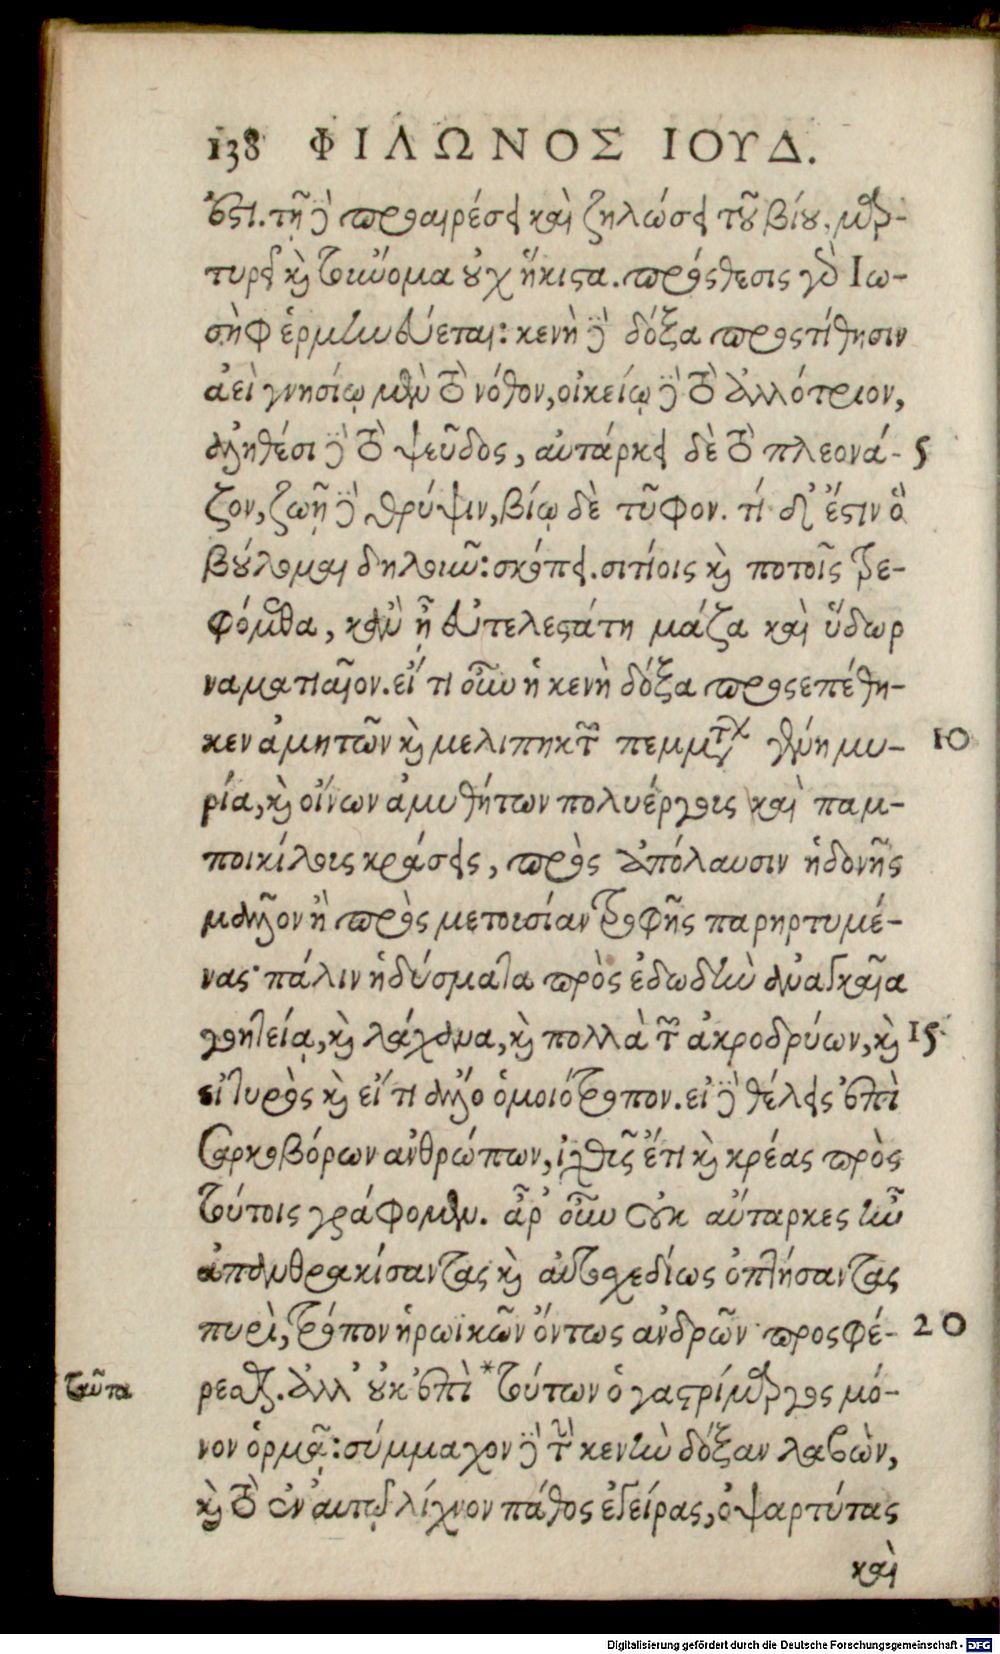 138 ΦΙΛΩΝΟΣ ΙΟΥΔ.
ἐστι. τῇ δὲ προαιρέσει καὶ ζηλώσει τοῦ βίου, μαρ-
τυρεῖ καὶ τοὔνομα οὐχ ἥκιστα. πρόςθεσις γὰρ Ἰω-
σὴφ ἑρμηνεύεται: κενὴ δὲ δόξα προςτίθησιν
ἀεὶ γνησίῳ μὲν τὸ νόθον, οἰκείῳ δὲ τὸ ἀλλότριον,
ἀληθέσι δὲ τὸ ψεῦδος, αὐτάρκει δὲ τὸ πλεονά- 5
ζον, ζωῇ δὲ θρύψιν, βίῳ δὲ τῦφον. τί δ' ἔστιν ὃ
βούλομαι δηλοῦν: σκόπει. σιτίοις καὶ ποτοῖς τρε-
φόμεθα, κἂν ᾖ εὐτελεστάτη μάζα καὶ ὕδωρ
ναματιαῖον. εἴ τι οὖν ἡ κενὴ δόξα προςεπέθη-
κεν ἀμητῶν καὶ μελιπηκτῶν πεμμάτων γένη μυ- 10
ρία, καὶ οἴνων ἀμυθήτων πολυέργοις καὶ παμ-
ποικίλοις κράσεις, πρὸς ἀπόλαυσιν ἡδονῆς
μᾶλλον ἢ πρὸς μετουσίαν τροφῆς παρηρτυμέ-
νας· πάλιν ἡδύσματα πρὸς ἐδωδὴν ἀναγκαῖα
γητεία, καὶ λάχανα, καὶ πολλὰ τῶν ἀκροδρύων, καὶ 15
εἰ τυρὸς καὶ εἴ τι ἄλλο ὁμοιότροπον. εἰ δὲ θέλεις ἐπὶ
σαρκοβόρων ἀνθρώπων, ἰχθῦς ἔτι καὶ κρέας πρὸς
τούτοις γράφομεν. ἆρ' οὖν οὐκ αὔταρκες ἦν
ἀπανθρακίσαντας καὶ αὐτοσχεδίως ὀπτήσαντας
πυρὶ, τρόπον ἡρωϊκῶν ὄντως ἀνδρῶν· προςφέ- 20
ταῦτα
ρεσθαι. ἀλλ' οὐκ ἐπὶ *τούτων ὁ γαστρίμαργος μό-
νον ὁρμᾷ: σύμμαχον δὲ τὴν κενὴν δόξαν λαβὼν,
καὶ τὸ ἐν αὑτῷ λίχνον πάθος ἐγείρας, ὀψαρτύτας
καὶ
Digitalisierung gefördert durch die Deutsche Forschungsgemeinschaft - DFG